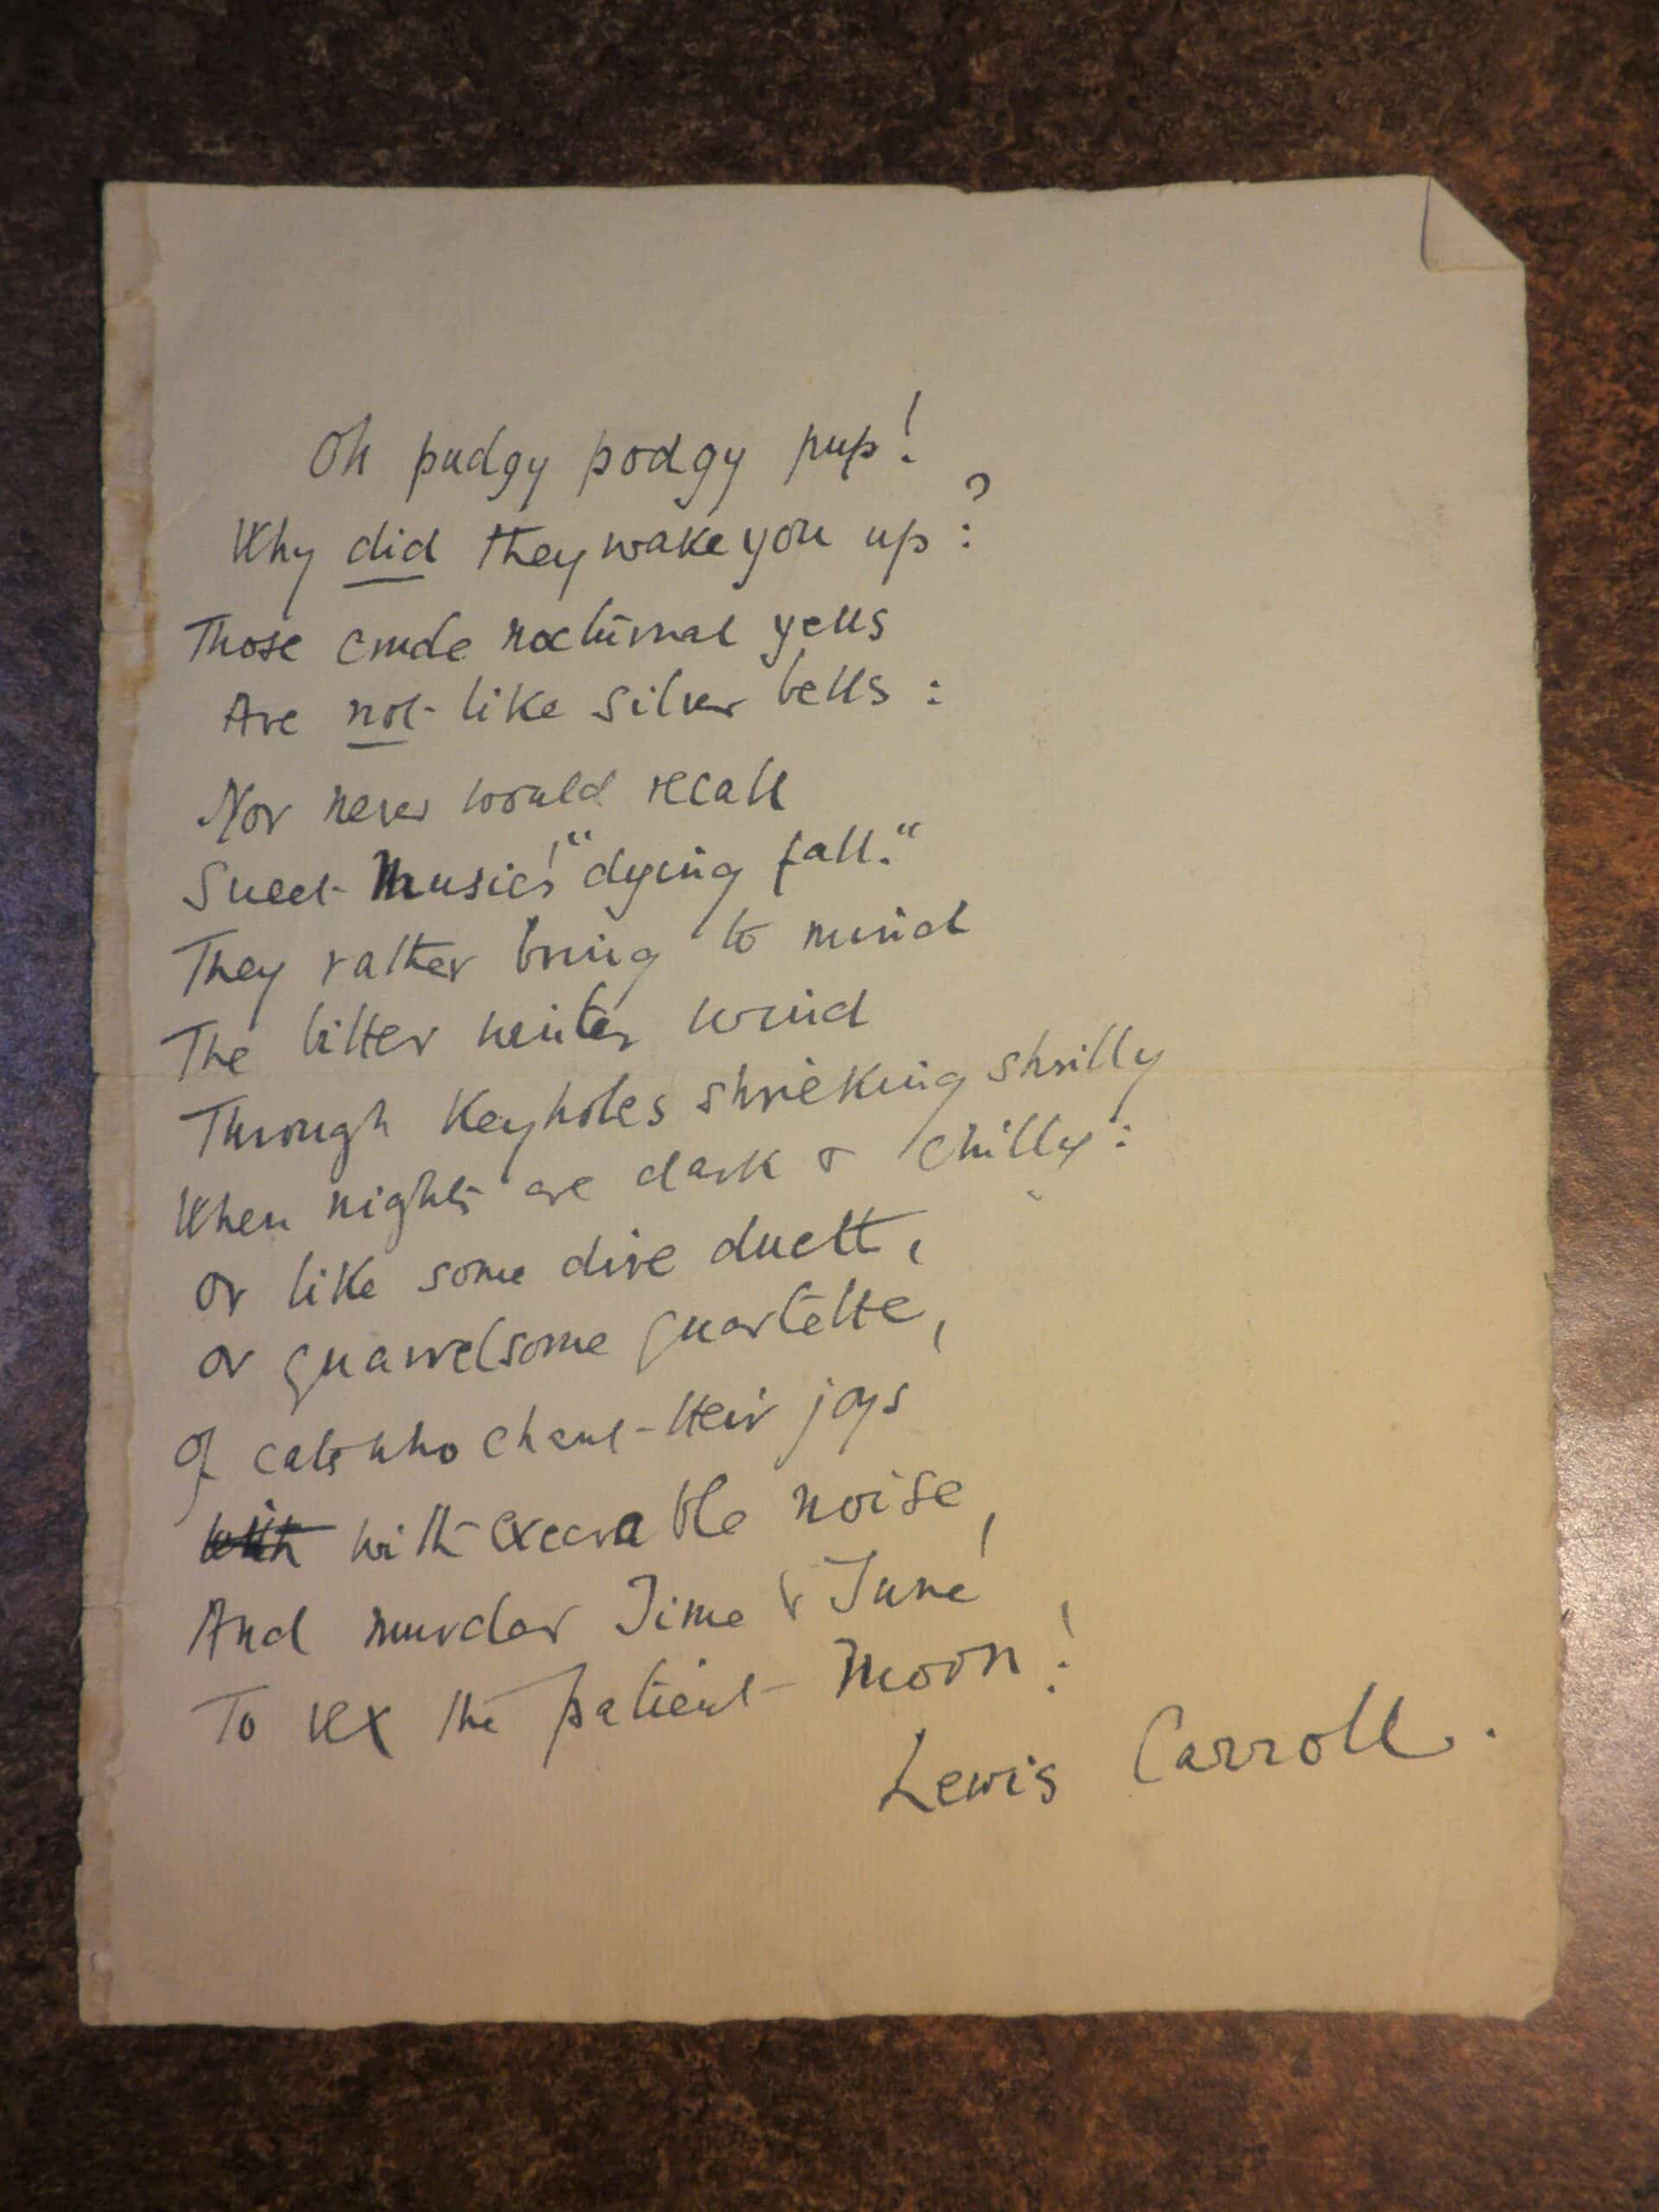 Oh pudgy podgy pup!
Why did they wake you up?
Those crude nocturnal yells
Are not like silver bells:
Nor never would recall
Sweet Music's "dying fall."
They rather bring to mind
The bitter winter wind
Through Keyholes shrieking shrilly
When nights are dark & chilly:
Or like some dire duett,
Or quarrelsome quartette,
Of cats who chant their joys
With with execrable noise,
And murder Time & Tune
To vex the patient Moon!
Lewis Carroll.